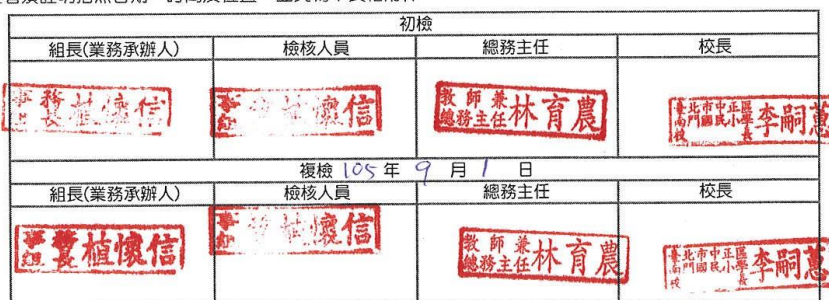 初檢
組長(業務承辦人) 檢核人員 總務主任 校長
事務組長 植懷信 事務組長 植懷信 教師兼總務主任 林育農 臺北市中正區南門國民小學校長 李嗣蕙
複檢 105 年 9 月 1 日
組長(業務承辦人) 檢核人員 總務主任 校長
事務組長 植懷信 事務組長 植懷信 教師兼總務主任 林育農 臺北市中正區南門國民小學校長 李嗣蕙